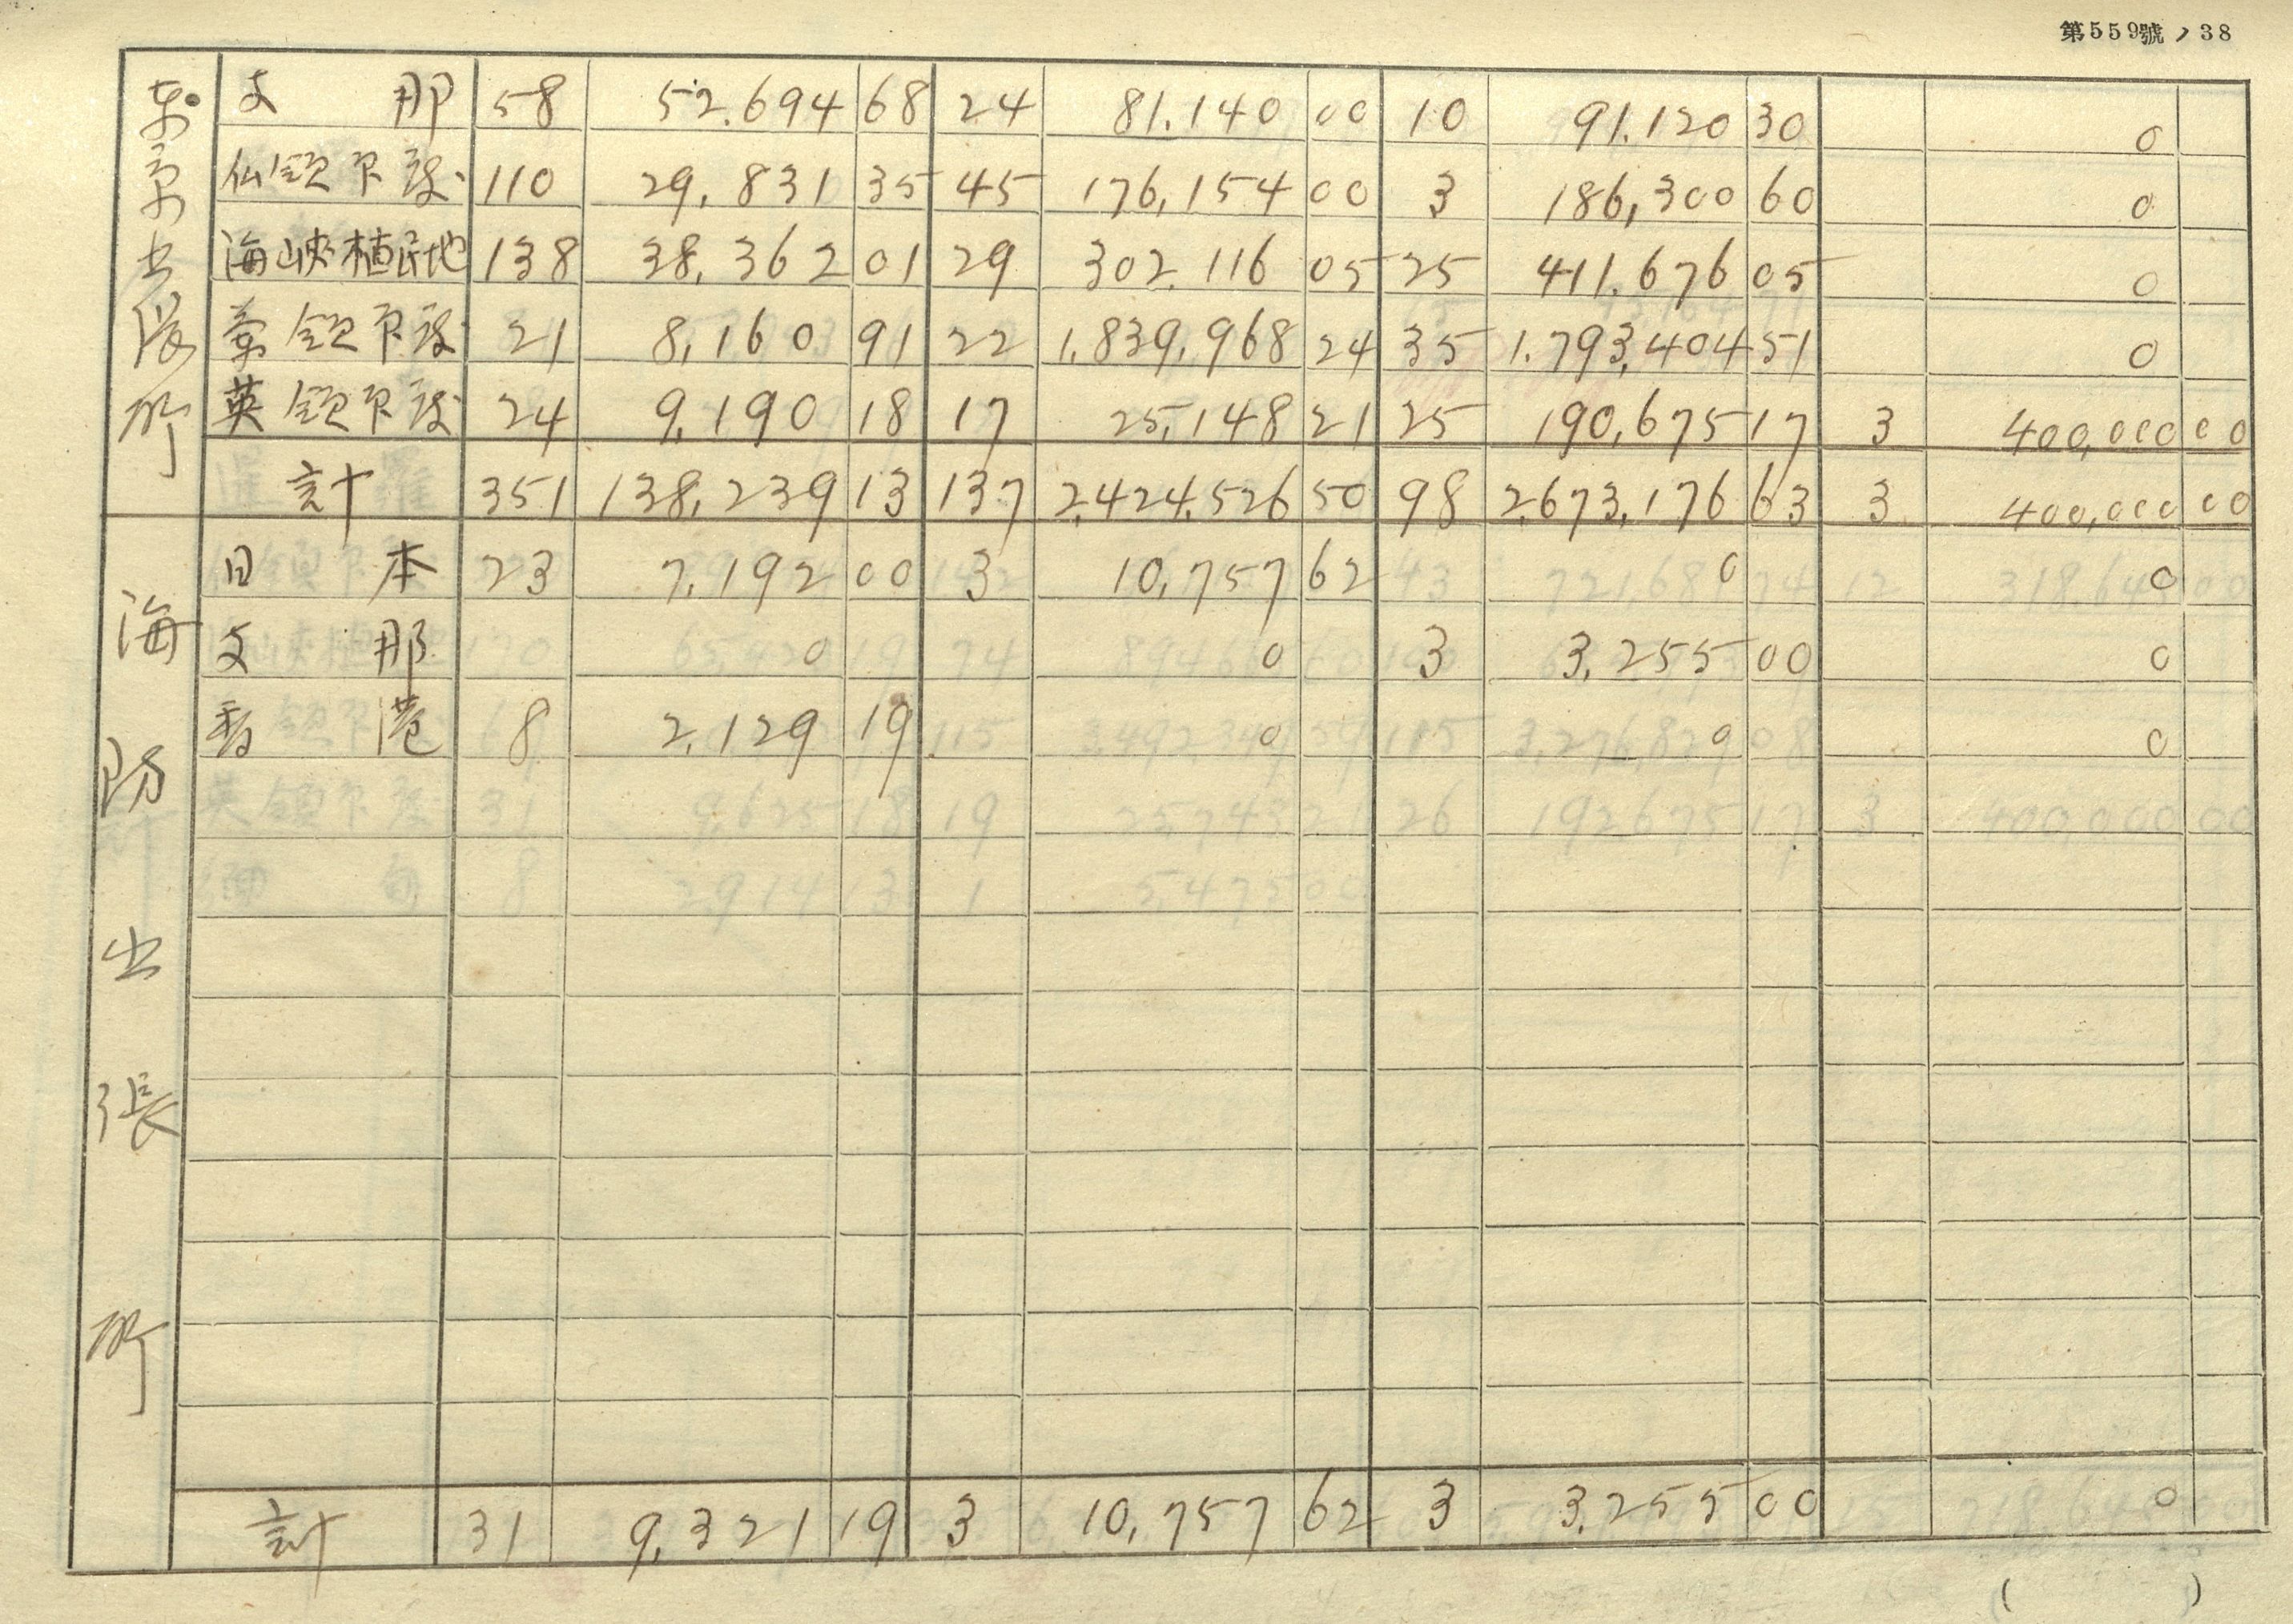 第559號ノ38
東京出張所
支那 58 52.694 68 24 81.140 00 10 91.120 30 0
仏領印度 110 29,831 35 45 176,154 00 3 186,300 60 0
海峡植民地 138 38,362 01 29 302.116 05 25 411.676 05 0
蘭領印度 21 8,160 91 22 1,839,968 24 35 1.793,404 51 0
英領印度 24 9,190 18 17 25,148 21 25 190,675 17 3 400,000 00
計 351 138,239 13 137 2,424,526 50 98 2,673,176 63 3 400,000 00
海防出張所
日本 23 7,192 00 3 10,757 62 0 0
支那 0 0 3 3,255 00 0
香港 8 2,129 19 0 0 0
計 31 9,321 19 3 10,757 62 3 3,255 00 0
( )